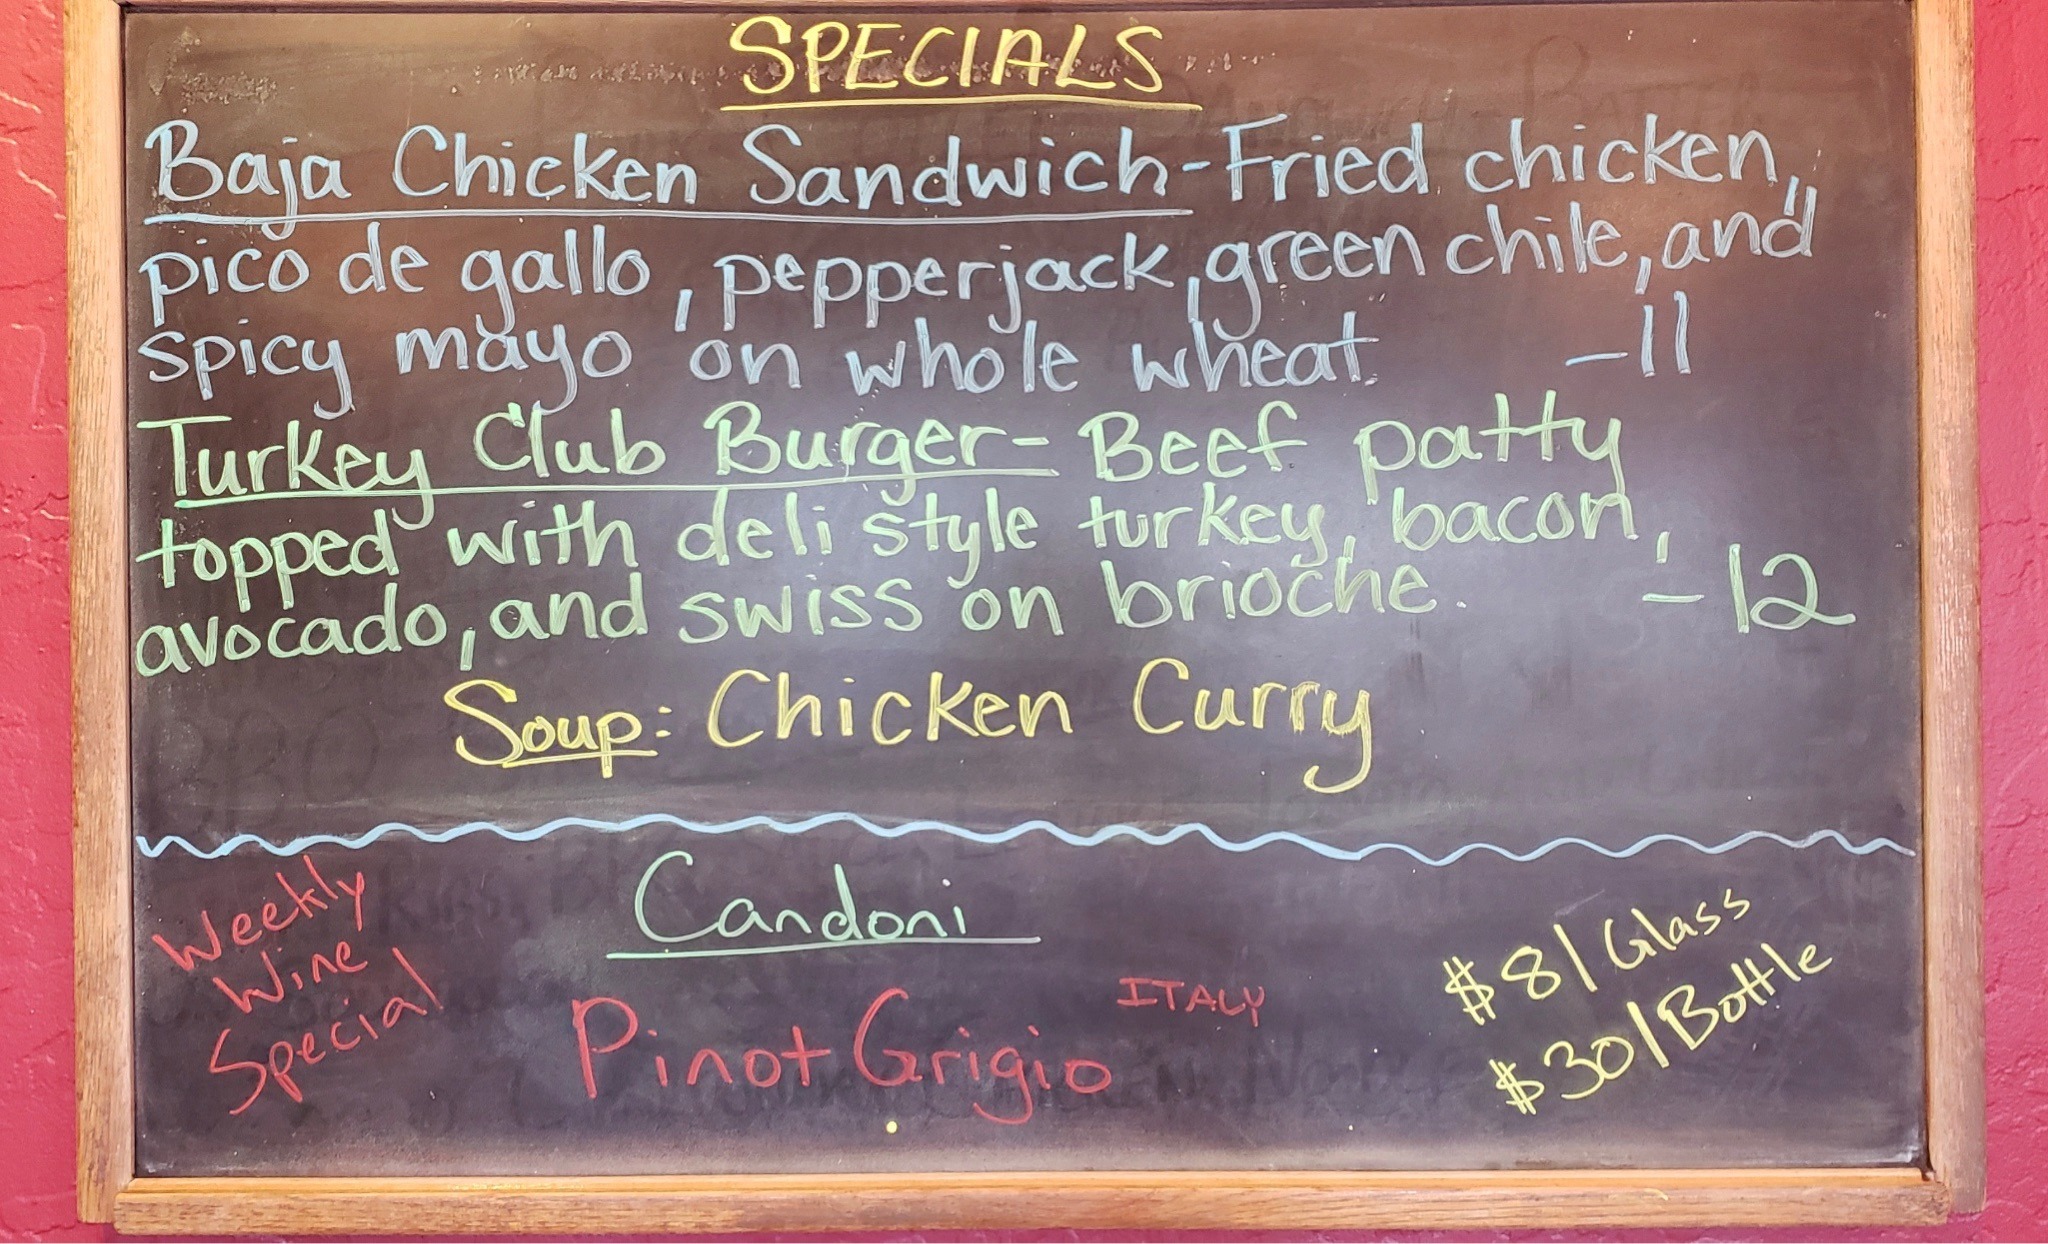 SPECIALS
Baja Chicken Sandwich-Fried chicken,
pico de gallo, pepperjack, green chile, and
spicy mayo on whole wheat. -11
Turkey Club Burger- Beef patty
topped with deli style turkey, bacon,
avocado, and swiss on brioche. -12
Soup: Chicken Curry
Weekly
Wine
Special
Candoni
Pinot Grigio ITALY
$8/Glass
$30/Bottle